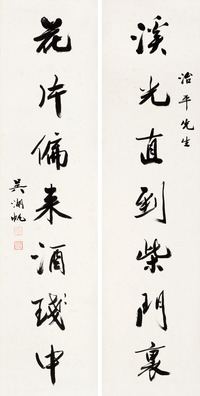 溪光直到柴門裏
治平先生
花片偏来酒琖中
吳湖帆